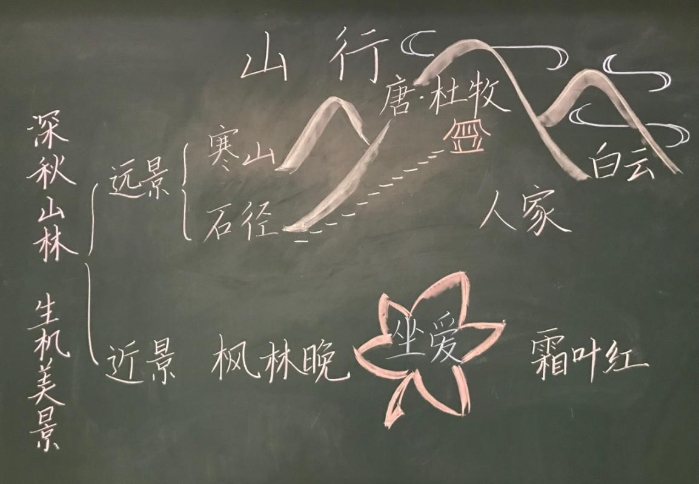 山行
唐·杜牧
深秋山林 生机美景
远景
寒山
石径
白云
人家
近景 枫林晚 坐爱 霜叶红